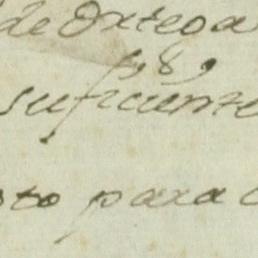 de Ortega
fr 89
suficiente
sto para